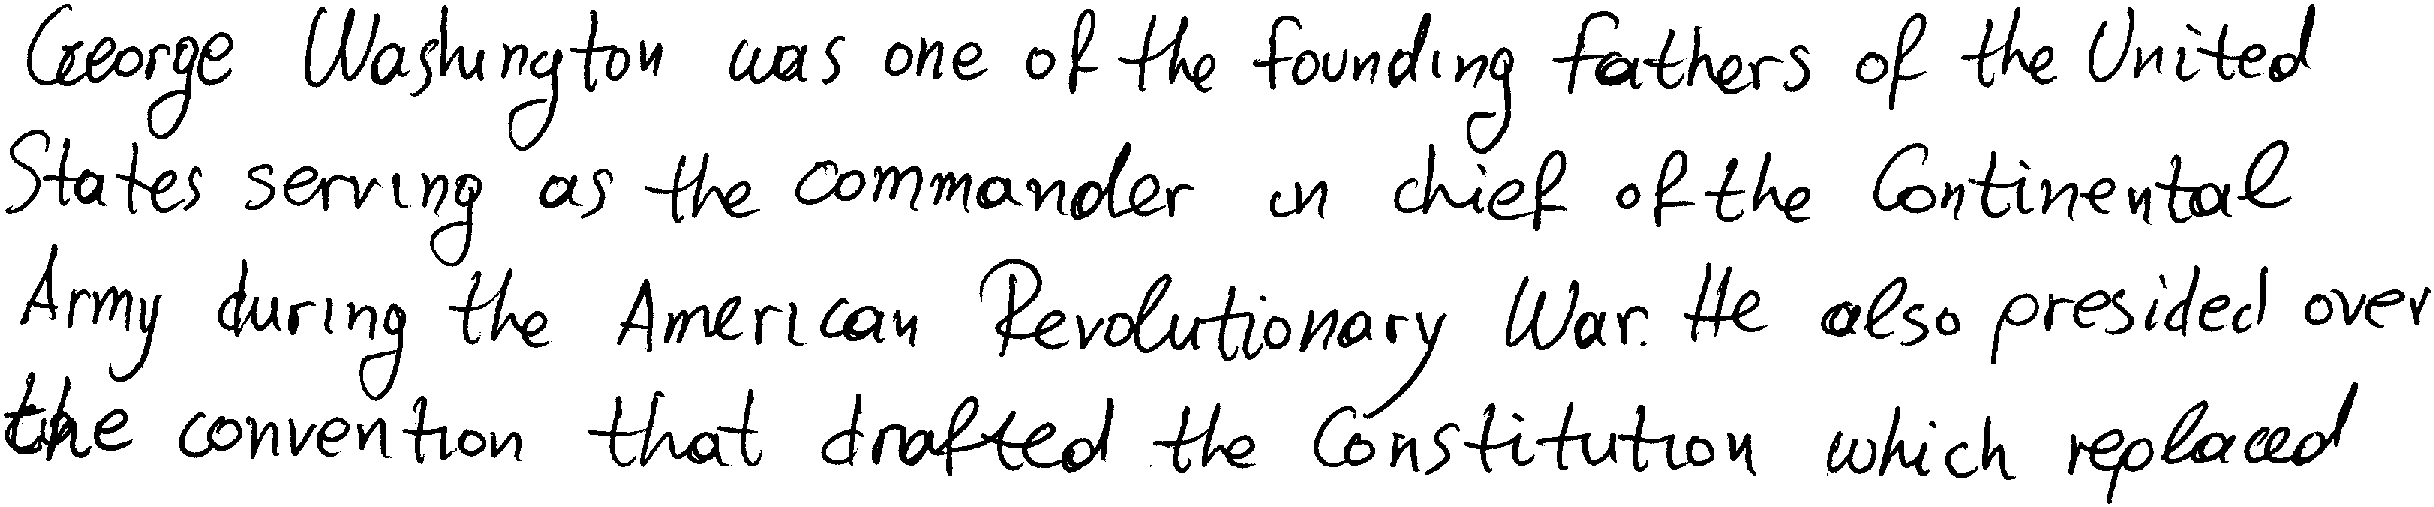 George Washington was one of the founding fathers of the United
States serving as the commander in chief of the Continental
Army during the American Revolutionary War. He also presided over
the convention that drafted the Constitution which replaced